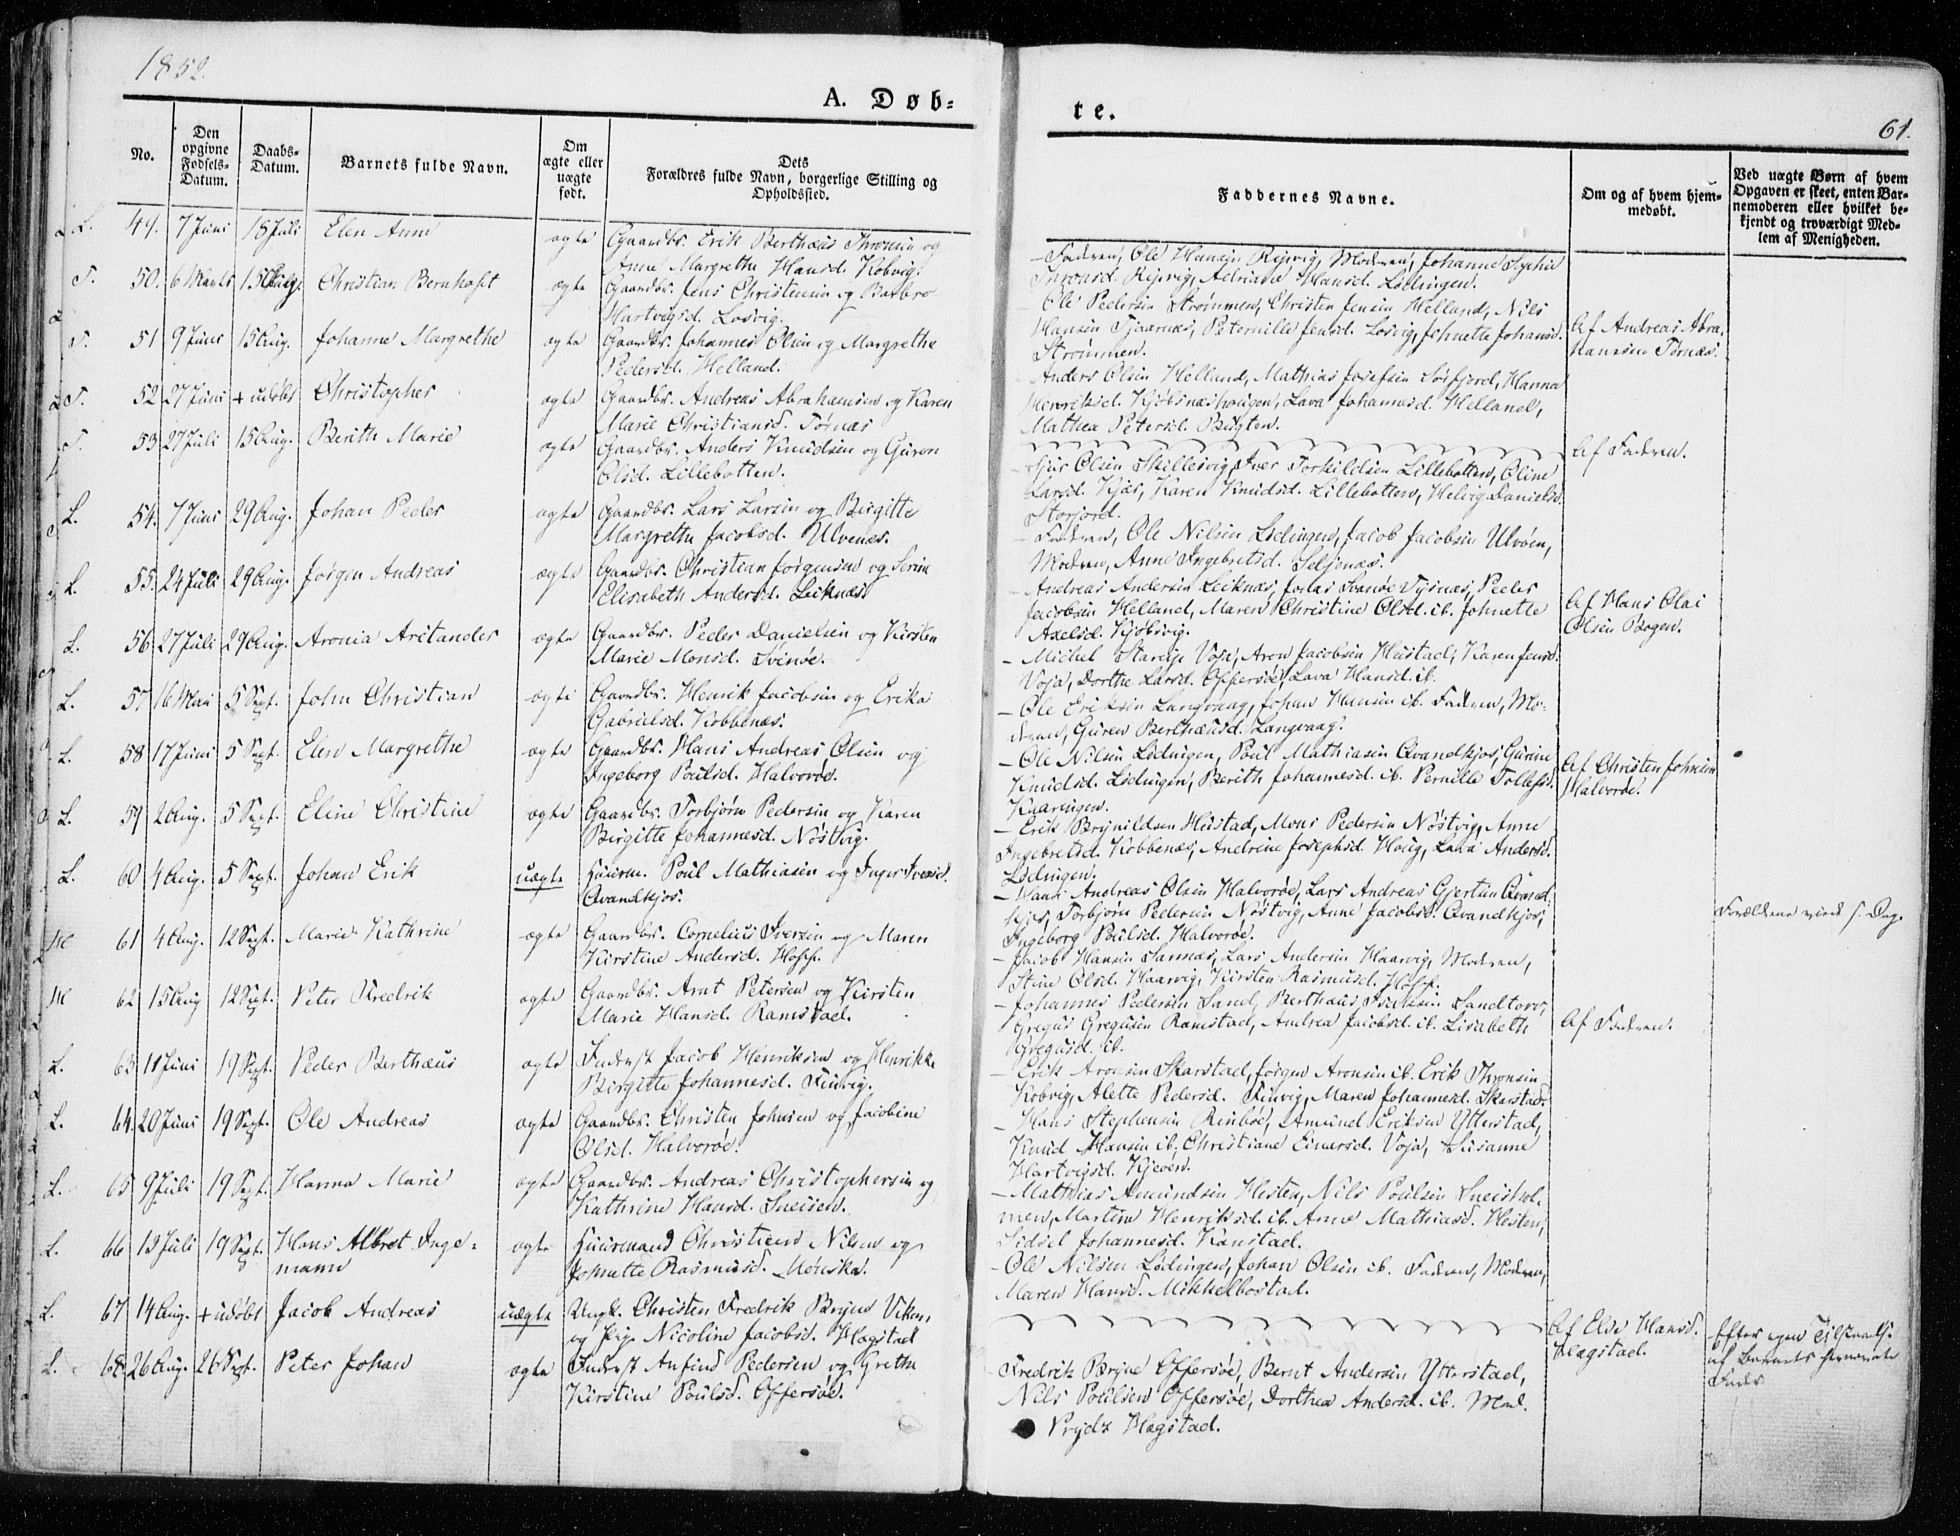 1852.
A. Døb=
te.
61.
No.
Den opgivne Fødsels-Datum.
Daabs-Datum.
Barnets fulde Navn.
Om ægte eller uægte født.
Dets Forældres fulde Navn, borgerlige Stilling og Opholdssted.
Faddernes Navne.
Om og af hvem hjemmedøbt.
Ved uægte Børn af hvem Opgaven er skeet, enten Barnemoderen eller hvilket bekjendt og troværdigt Medlem af Menigheden.
L. 49. 7 Juni 18 Juli Elen Anne ægte Gaardbr. Erik Berthæus Thronsen og
Anne Margrethe Hansd. Kobvig.
T. 50. 6 Marts 15 Aug. Christian Bernhoft ægte Gaardbr. Jens Christensen og Barbro
Hartvigsd. Losvig.
T. 51 9 Juni 15 Aug. Johanne Margrethe ægte Gaardbr. Johannes Olsen og Margrethe
Pedersd. Helland.
T. 52 27 Juni + udøbt Christopher ægte Gaardbr. Andreas Abrahamsen og Karen
Marie Christiansd. Tørnæs
T. 53 27 Juli 15 Aug. Berith Marie ægte Gaardbr. Anders Knudsen og Guren
Olsd. Lillebotten.
L. 54. 7 Juni 29 Aug. Johan Peder ægte Gaardbr. Lars Larsen og Birgitte
Margrethe Jacobsd. Ulvenæs.
L. 55. 24 Juli 29 Aug. Jørgen Andreas ægte Gaardbr. Christian Jørgensen og Serine
Elisabeth Andersd. Leiknæs
L. 56 27 Juli 29 Aug. Aronia Aretander ægte Gaardbr. Peder Danielsen og Kirsten
Marie Monsd. Svinøe.
L. 57 16 Mai 5 Sept. John Christian ægte Gaardbr. Henrik Jacobsen og Erika
Gabrielsd. Kobbenæs.
L. 58 17 Juni 5 Sept. Elen Margrethe ægte Gaardbr. Hans Andreas Olsen og
Ingeborg Poulsd. Halvorøe.
L. 59 2 Aug. 5 Sept. Eline Christine ægte Gaardbr. Torbjørn Pedersen og Karen
Birgitte Johannesd. Nøstvig.
L. 60 4 Aug. 5 Sept. Johan Erik uægte Huusm. Poul Mathiasen og Inger Iversd.
Qvandkjos.
M 61 4 Aug. 12 Sept. Marie Kathrine ægte Gaardbr. Cornelius Iversen og Maren
Kirstine Andersd. Hoff.
M 62 15 Aug 12 Sept. Peter Fredrik ægte Gaardbr. Arnt Petersen og Kirsten
Marie Hansd. Ramstad.
L. 63 11 Juni 19 Sept. Peder Berthæus ægte Inderst Jacob Henriksen og Henrikke
Birgitte Johannesd. Finvig.
L. 64. 20 Juni 19 Sept. Ole Andreas ægte Gaardbr. Christen Johnsen og Jacobine
Olsd. Halvorøe.
L. 65 9 Juli 19 Sept. Hanna Marie ægte Gaardbr. Andreas Christophersen og
Kathrine Hansd. Sneisen.
L. 66 13 Juli 19 Sept. Hans Albret Inge=
mann ægte Huusmand Christian Nilsen og
Johnette Rasmusd.
L. 67 14 Aug. + udøbt Jacob Andreas uægte Ungk. Christen Fredrik Bryne Viken,
og Pige Nicoline Jacobsd. Hægstad
L. 68 26 Aug. 26 Sept. Peter Johan ægte Inderst Anfind Pedersen og Grethe
Kirstine Poulsd. Offersøe.
- Faderen, Ole Hansen Rejvig, Moderen, Johanne Sophie
Thronsd. Rejvig, Adriana Hansd. Lødingen.
- Ole Pedersen Strømmen, Christen Jensen Helland, Nils
Hansen Tjaarnæs, Peternille Jensd. Losvig, Johnette Johansd.
Strømmen.
Af Andreas Abra-
hamsen Tørnæs.
- Anders Olsen Helland, Mathias Josefsen Sørfjord, Hanna
Henriksd. Kjøbsnæshougen, Lava Johannesd. Helland,
Mathea Petersd. Bugten.
Af Faderen.
- Siur Olsen Skillesvig, Iver Torkildsen Lillebotten, Oline
Larsd. Kjær, Karen Knudsd. Lillebotten, Helvig Danielsd.
Storjord.
- Faderen, Ole Nilsen Lødingen, Jacob Jacobsen Ulvøen,
Moderen, Anne Ingebretsd. Seljenæs.
- Andreas Andersen Leiknæs, Jonas Svanøe Tysnæs, Peder
Jacobsen Helland, Maren Christine Olsd. ib. Johnette
Axelsd. Kjøbsvig.
Af Hans Olai
Olsen Bogen.
- Michel Voje, Aron Jacobsen Hustad, Karen Jensd.
Voja, Dorthe Larsd. Offersøe, Lava Hansd. ib.
- Ole Eriksen Langvaag, Johan Hansen ib. Faderen, Mo-
deren, Guren Berthæusd. Langvaag.
- Ole Nilsen Lødingen, Poul Mathiasen Qvandkjos, Gurine
Knudsd. Lødingen, Berith Johannesd. ib. Pernille Tollefsd.
Kaaringen.
Af Christen Johnsen
Halvorøe.
- Erik Brynildsen Hustad, Mons Pedersen Nøstvig, Anne
Ingebretsd. Kobbenæs, Andrine Josephsd. Houg, Lava Andersd.
Lødingen.
- Hans Andreas Olsen Halvorøe, Lars Andreas Gjertsen Qvand-
kjos, Torbjørn Pedersen Nøstvig, Anne Jacobsd. Qvandkjos,
Ingeborg Poulsd. Halvorøe.
Forældrene viede s. Dag.
- Jacob Hansen Sannæs, Lars Andersen Haarvig, Moderen,
Stine Olsd. Haarvig, Kirsten Rasmusd. Hoff.
- Johannes Pedersen Sand, Berthæus Sandtorv,
Gregus Gregusen Ramstad, Andrea Jacobsd. ib. Lisabeth
Gregusd. ib.
Af Faderen.
- Erik Aronsen Skarstad, Jørgen Aronsen ib. Erik Thronsen
Kobvig, Alette Pedersd. Finvig, Maren Johannesd. Skarstad.
- Hans Stephensen Rinbøe, Amund Eriksen Ytterstad,
Knud Hansen ib. Christiane Einersd. Voja, Susanne
Hartvigsd. Kjeøen.
- Mathias Amundsen Hesten, Nils Poulsen Sneishol-
men, Martine Henriksd. ib. Anne Mathiasd. Hesten,
Sidsel Johannesd. Kanstad.
- Ole Nilsen Lødingen, Johan Olsen ib. Faderen, Moderen,
Maren Hansd. Mikkelbostad.
Af Else Hansd.
Hægstad.
Efter egen Tilstaaelse
af Barnets
Fader
Fredrik Bryne Offersøe, Bernt Andersen Ytterstad,
Nils Poulsen Offersøe, Dorthea Andersd. ib. Mad.
Prydz Hægstad.